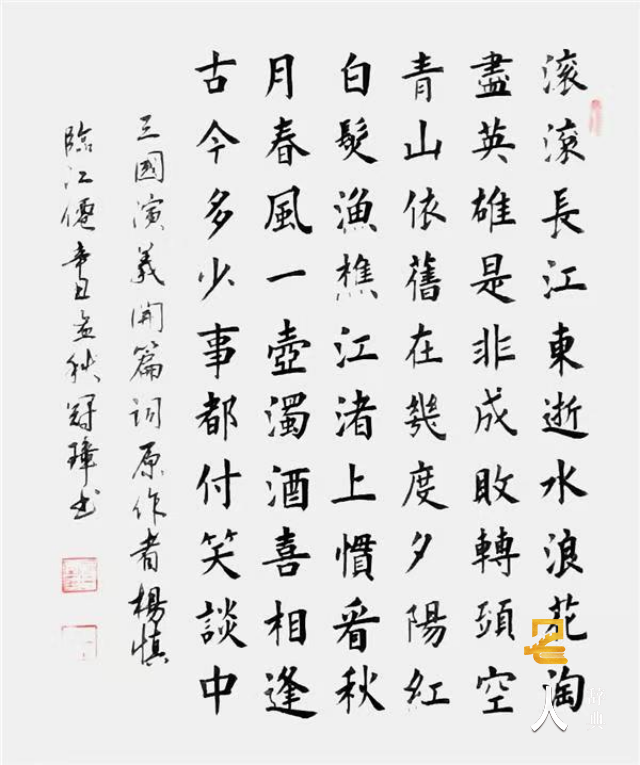 滚滚長江東逝水浪花淘
盡英雄是非成敗轉頭空
青山依舊在幾度夕陽紅
白髮漁樵江渚上慣看秋
月春風一壺濁酒喜相逢
古今多少事都付笑談中
三國演義開篇词原作者楊慎
臨江僊辛丑孟秋冠璋书
人
辞典